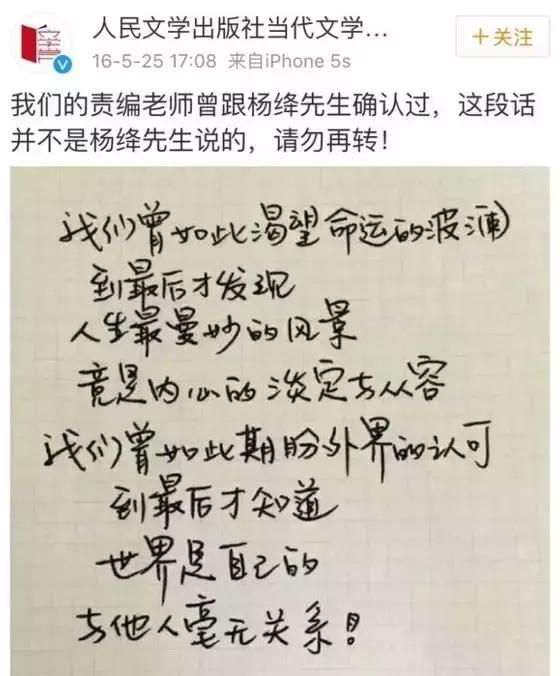 人民文学出版社当代文学...
+关注
16-5-25 17:08 来自iPhone 5s
我们的责编老师曾跟杨绛先生确认过，这段话
并不是杨绛先生说的，请勿再转！
我们曾如此渴望命运的波澜
到最后才发现
人生最曼妙的风景
竟是内心的淡定与从容
我们曾如此期盼外界的认可
到最后才知道
世界是自己的
与他人毫无关系！